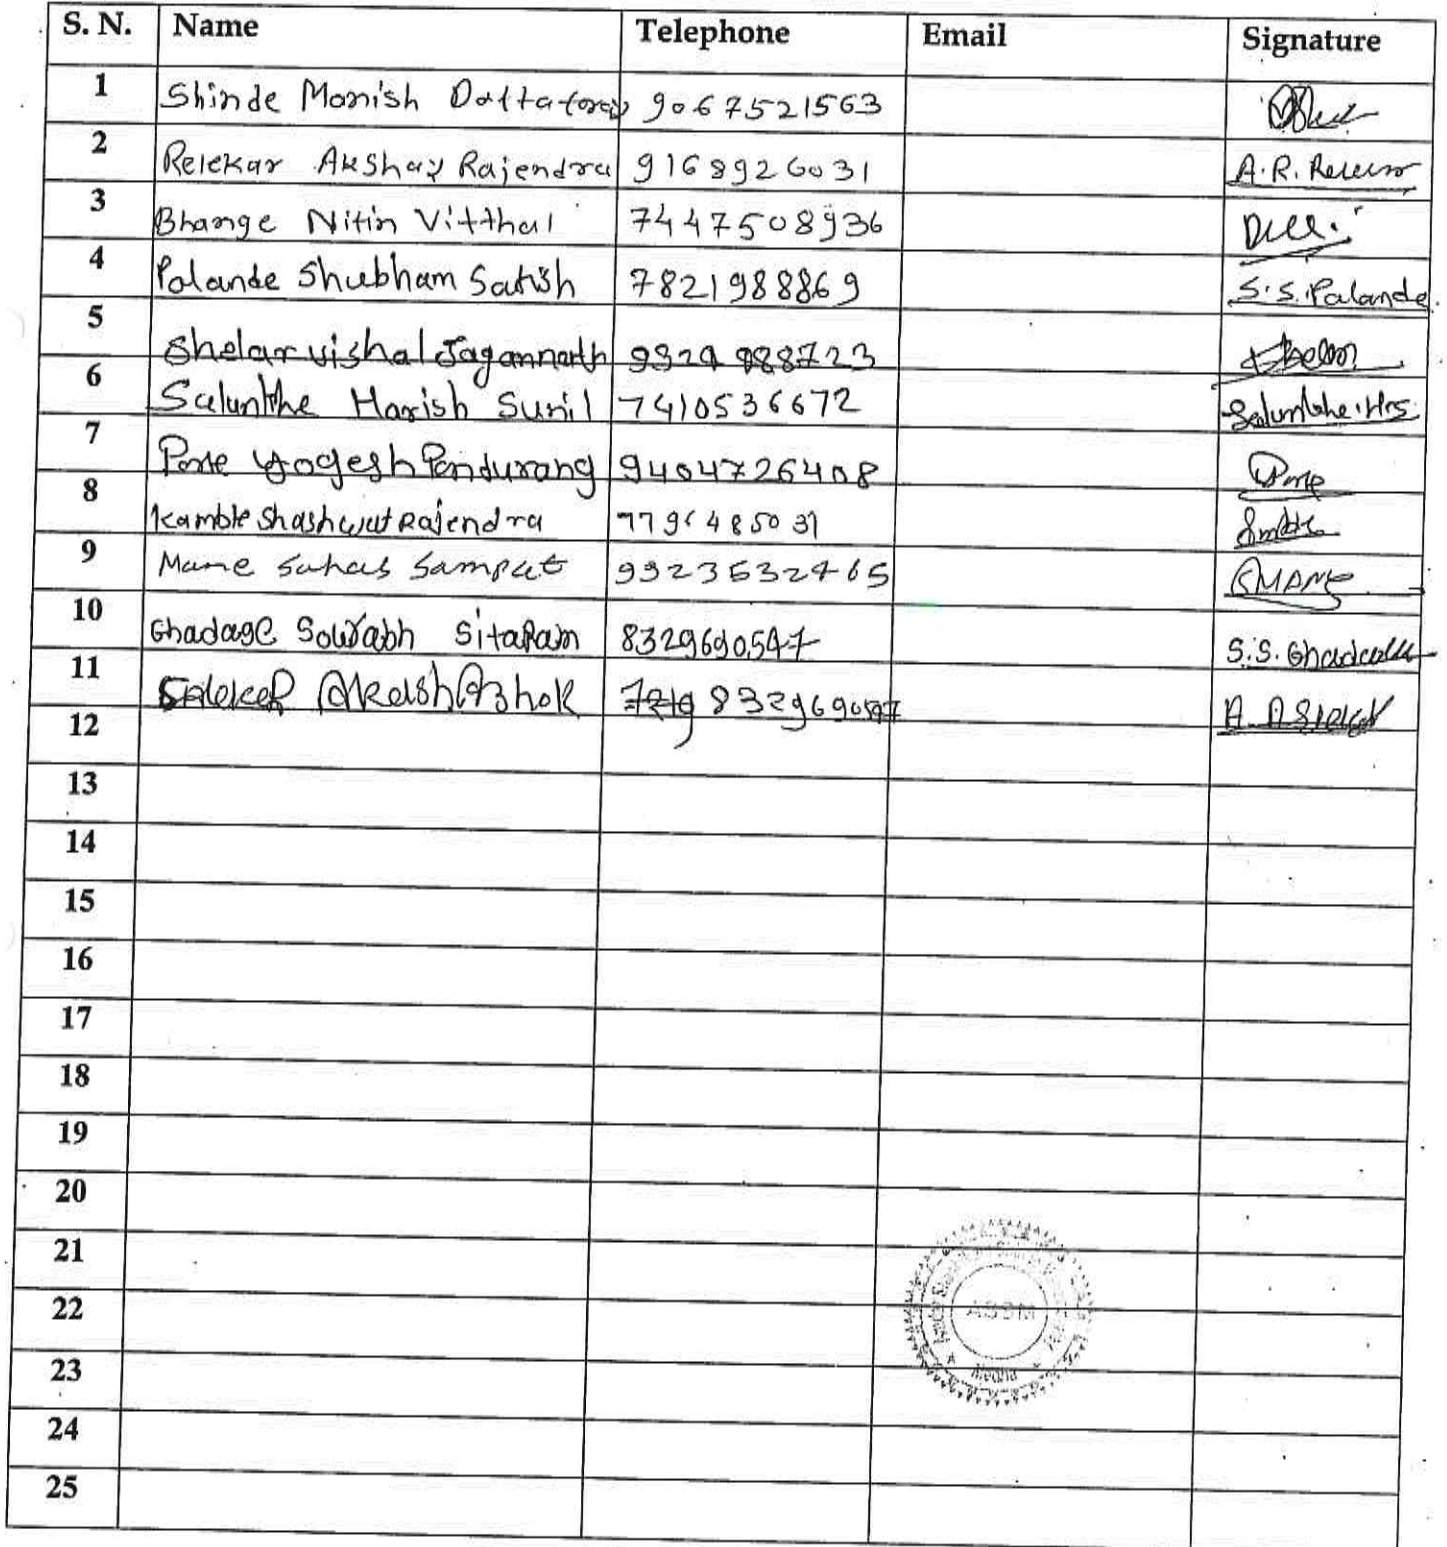 S. N. Name Telephone Email Signature
1 Shinde Monish Dattatray 9067521563
2 Relekar Akshay Rajendra 9168926031 A. R.
3 Bhange Nitin Vitthal 7447508936
4 Palande Shubham Satish 7821988869 S. S. Palande
5 Shelar vishal Jagannath
6 Salunkhe Harish Sunil 7410536672 Salunkhe. Hs
7 Pore Yogesh Pandurang 9404726408 Pore
8 Kamble Shashwat Rajendra 7796485031
9 Mane Suhas Sampat SMANE
10 Ghadage Sourabh SitaRam 8329690547 S. S.
11 Akash Ashok 8329690547 A. A
12
13
14
15
16
17
18
19
20
21
22
23
24
25
ASSM
Medha